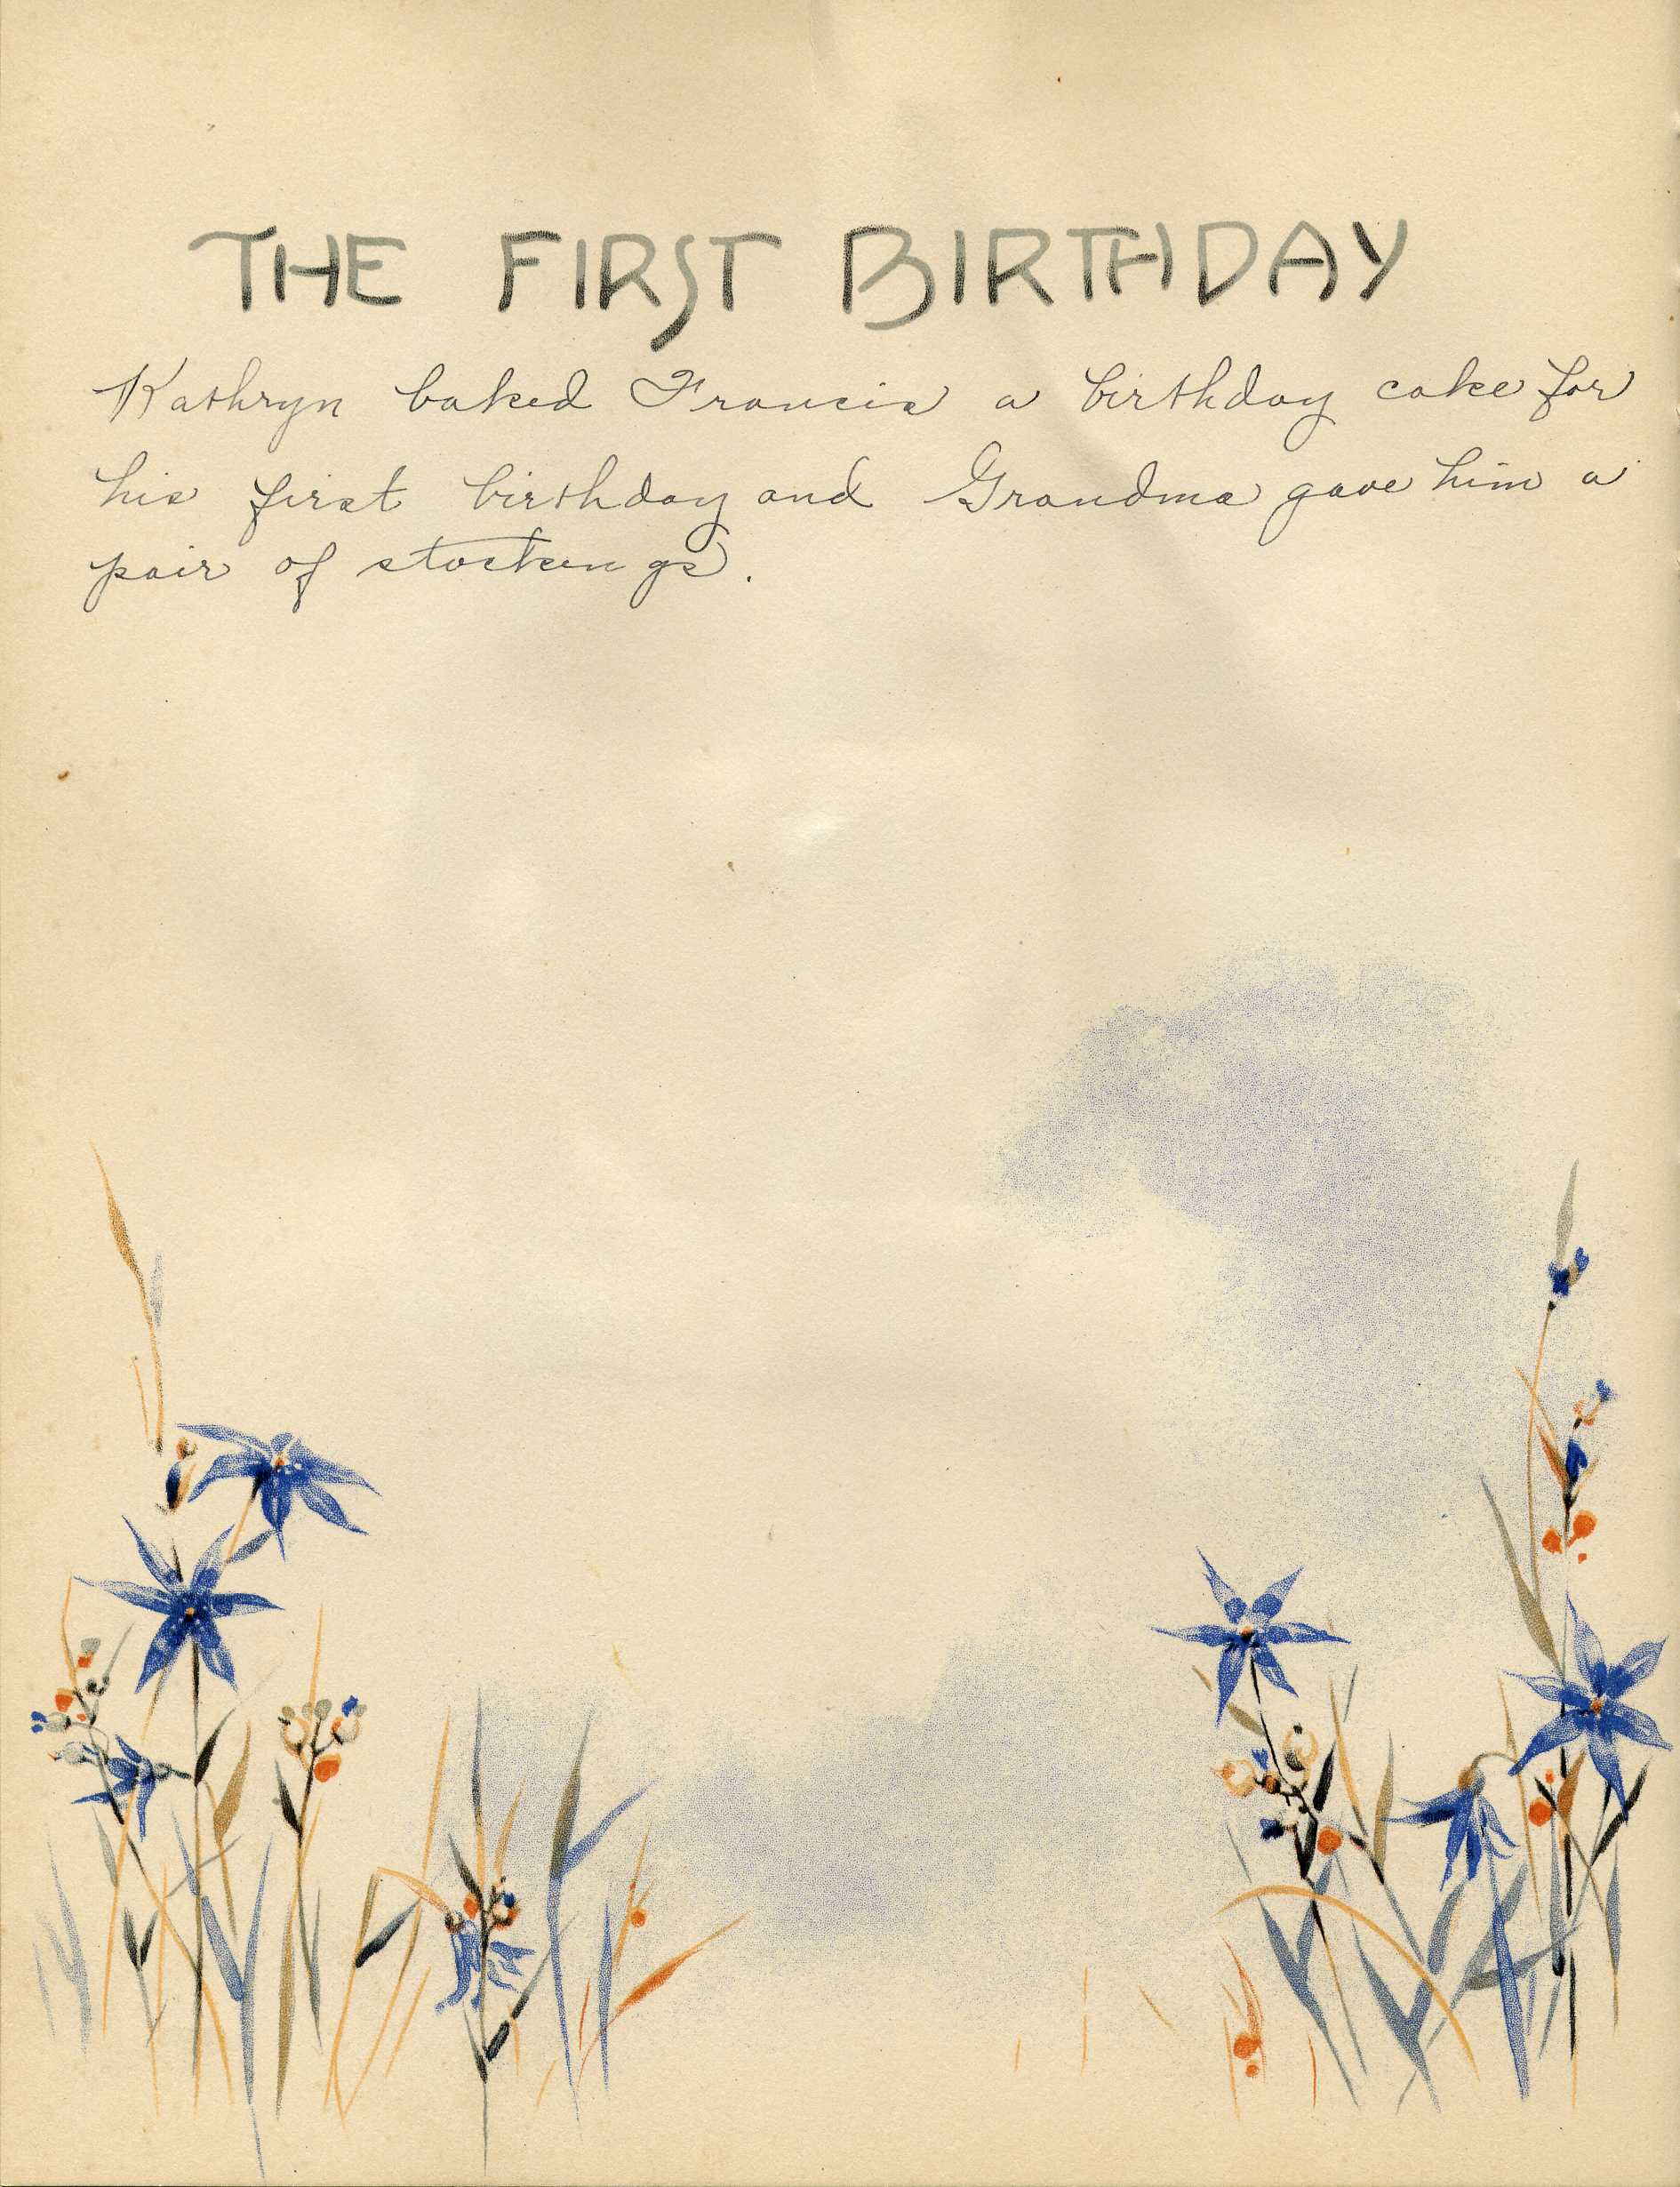 THE FIRST BIRTHDAY
Kathryn baked Francis a birthday cake for
his first birthday and Grandma gave him a
pair of stockings.